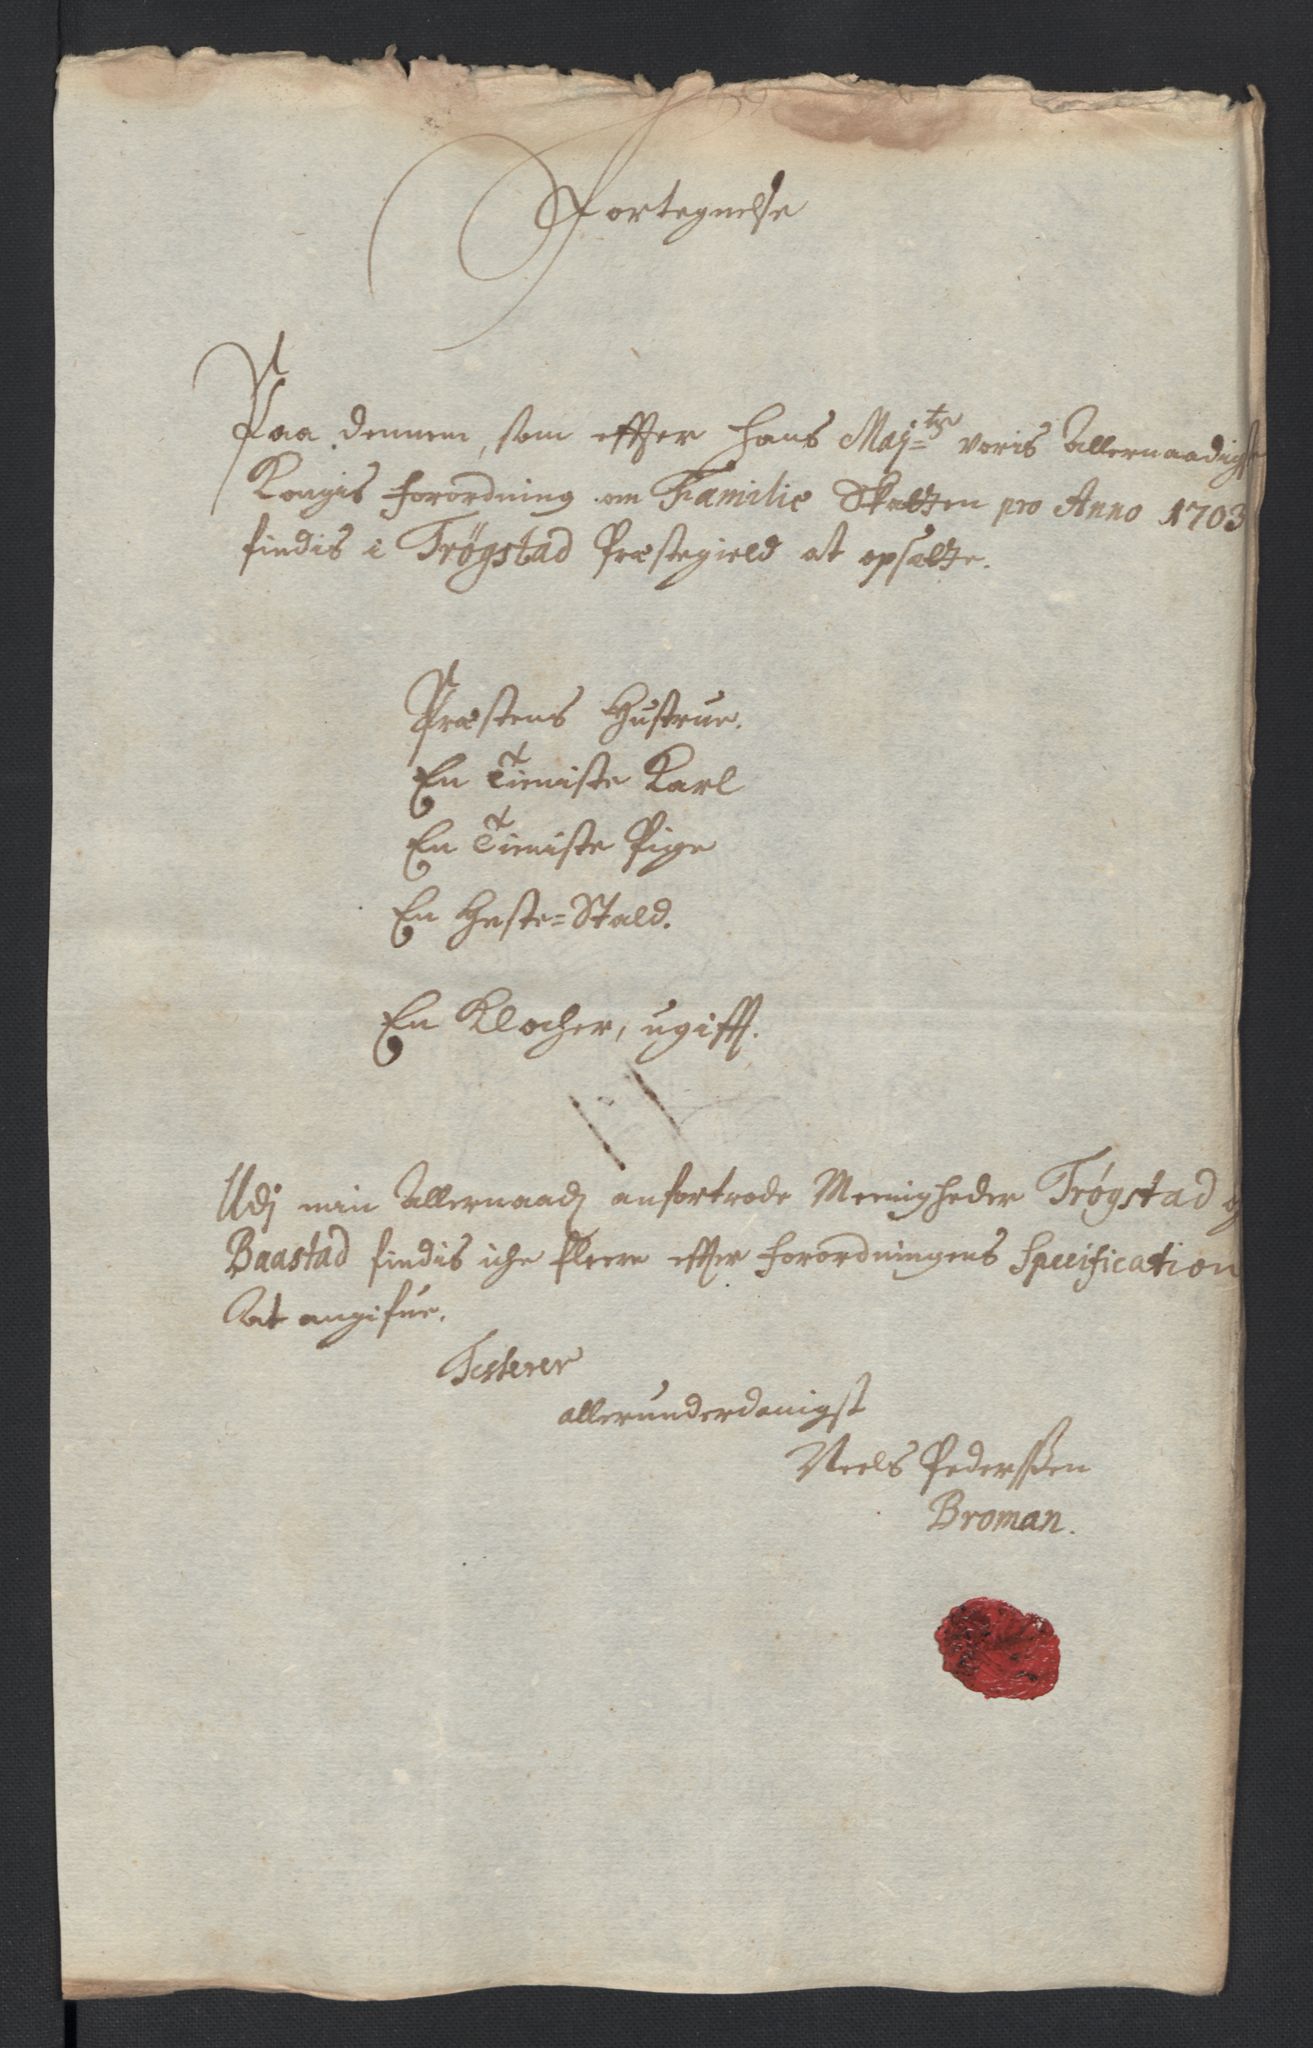 Fortegnelse
Paa dennem, som effter Hans Maj=tz voris Allernaadigste
Kongis forordning om Familie Skatten pro Anno 1703
findis i Trøgstad Præstegield at opsætte.
Præstens Hustrue.
En Tieniste Karl
En Tieniste Pige
En Heste=Stald.
En Klocher, ugifft.
Udj min Allernaadj anfortrode Meenigheder Trøgstad og
Baastad findis iche fleere effter forordningens Specification
At angifue.
Testerer
allerunderdanigst
Neels Pederssen
Broman.